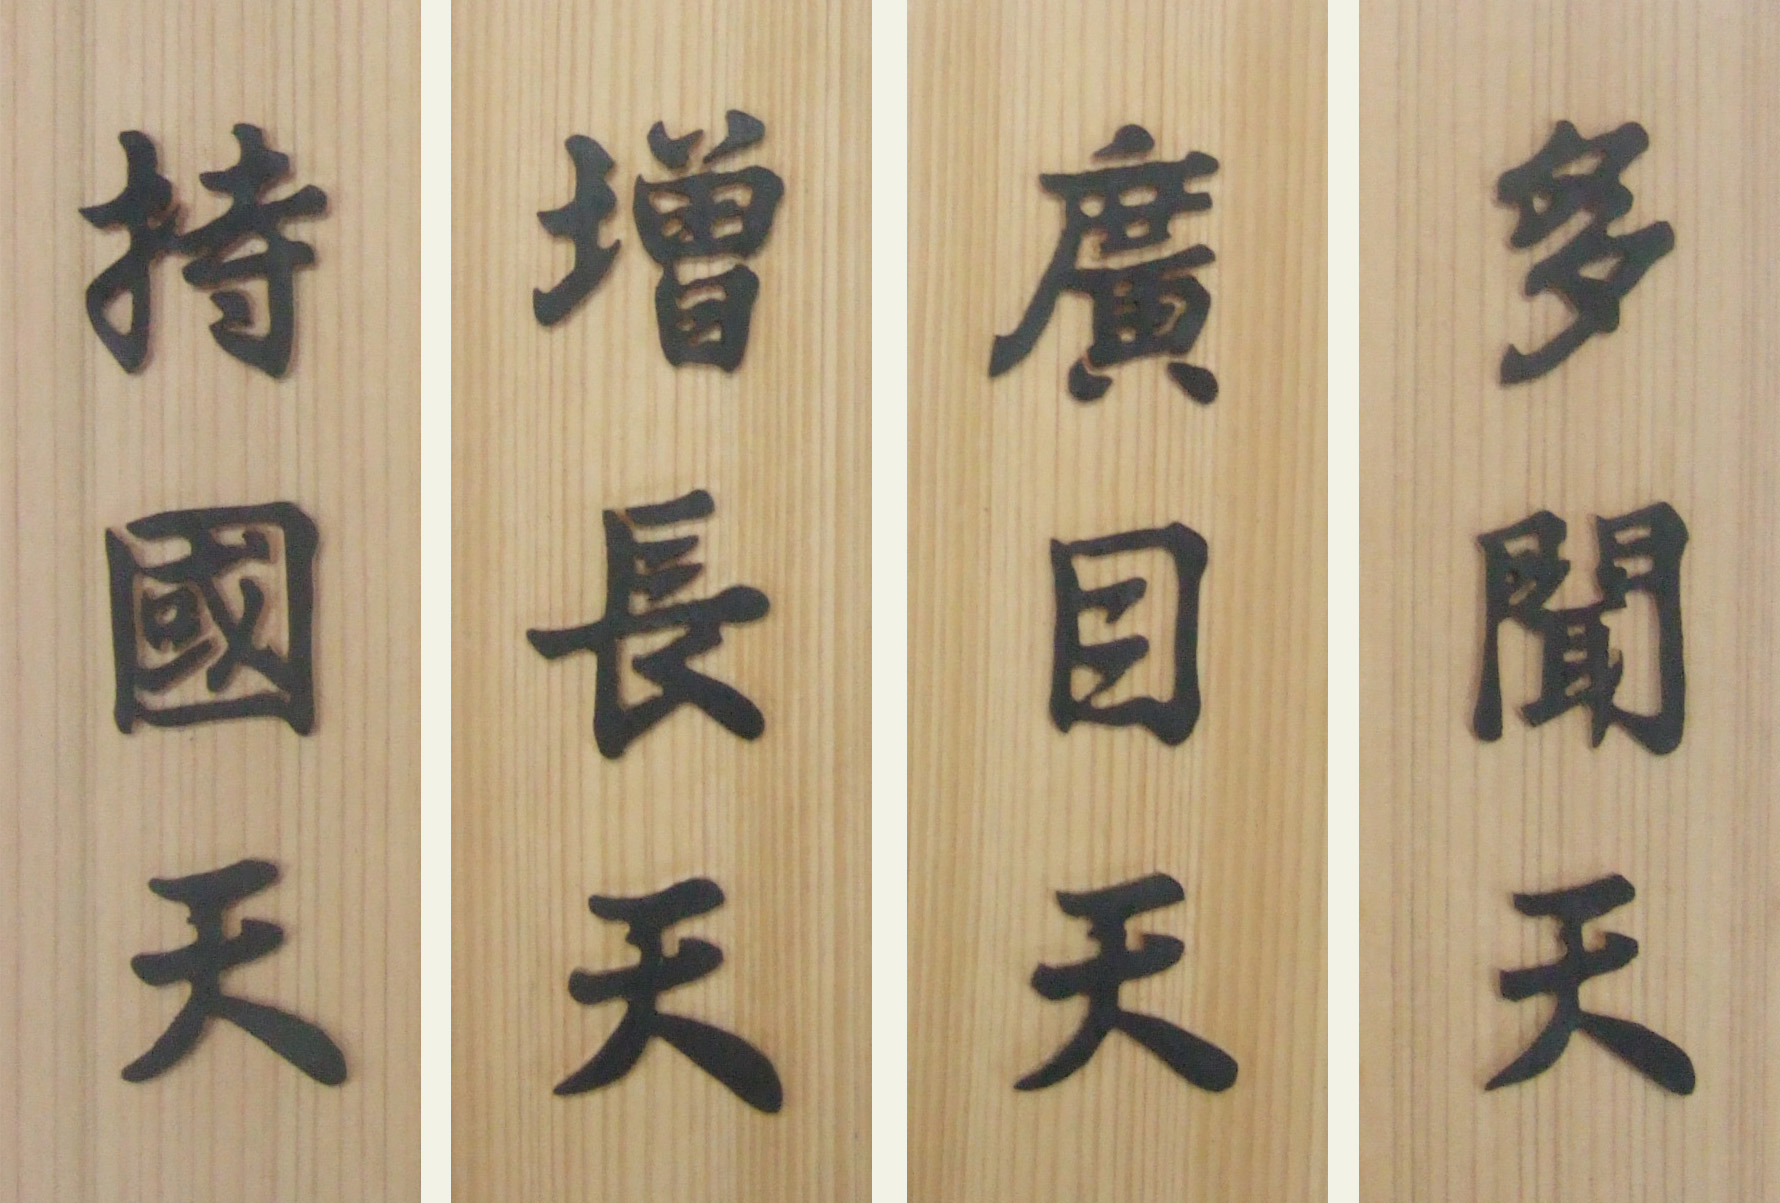 持國天
增長天
廣目天
多聞天